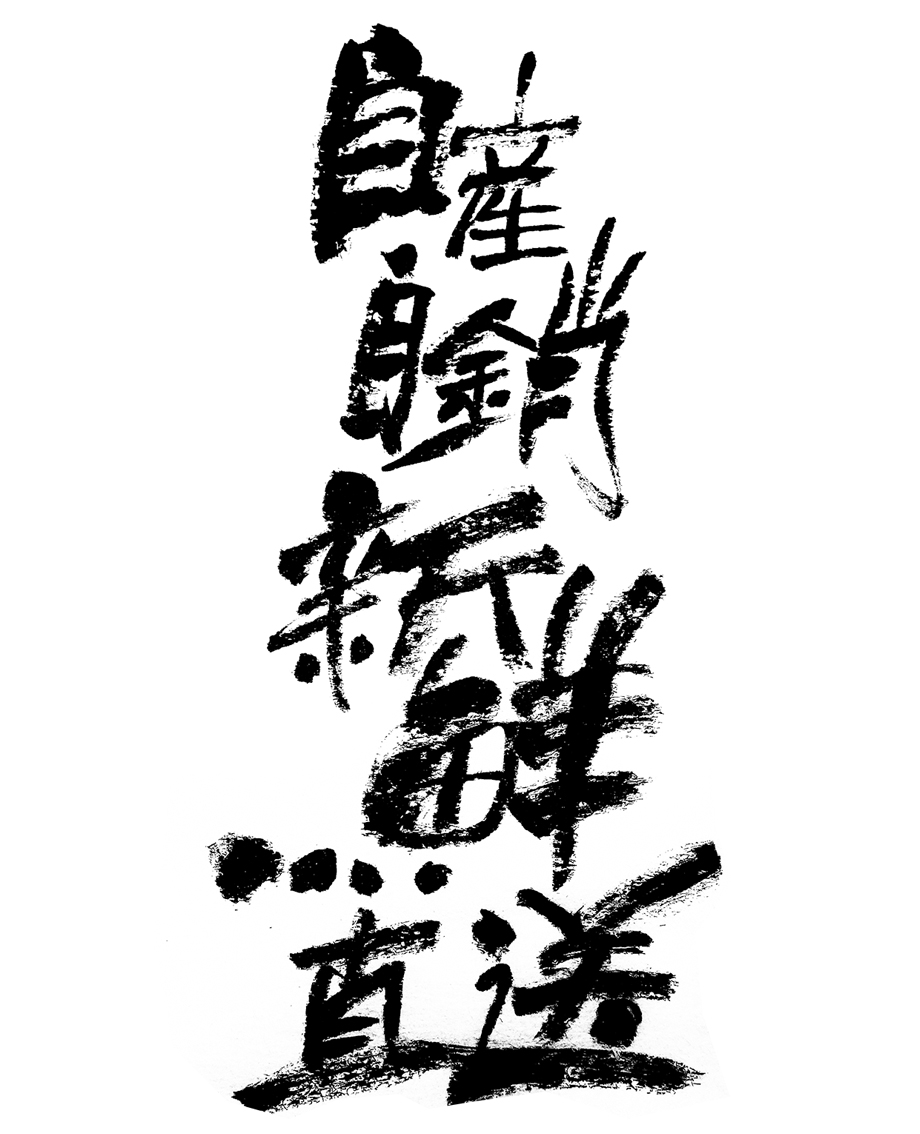 自產
自銷
新鮮
直送